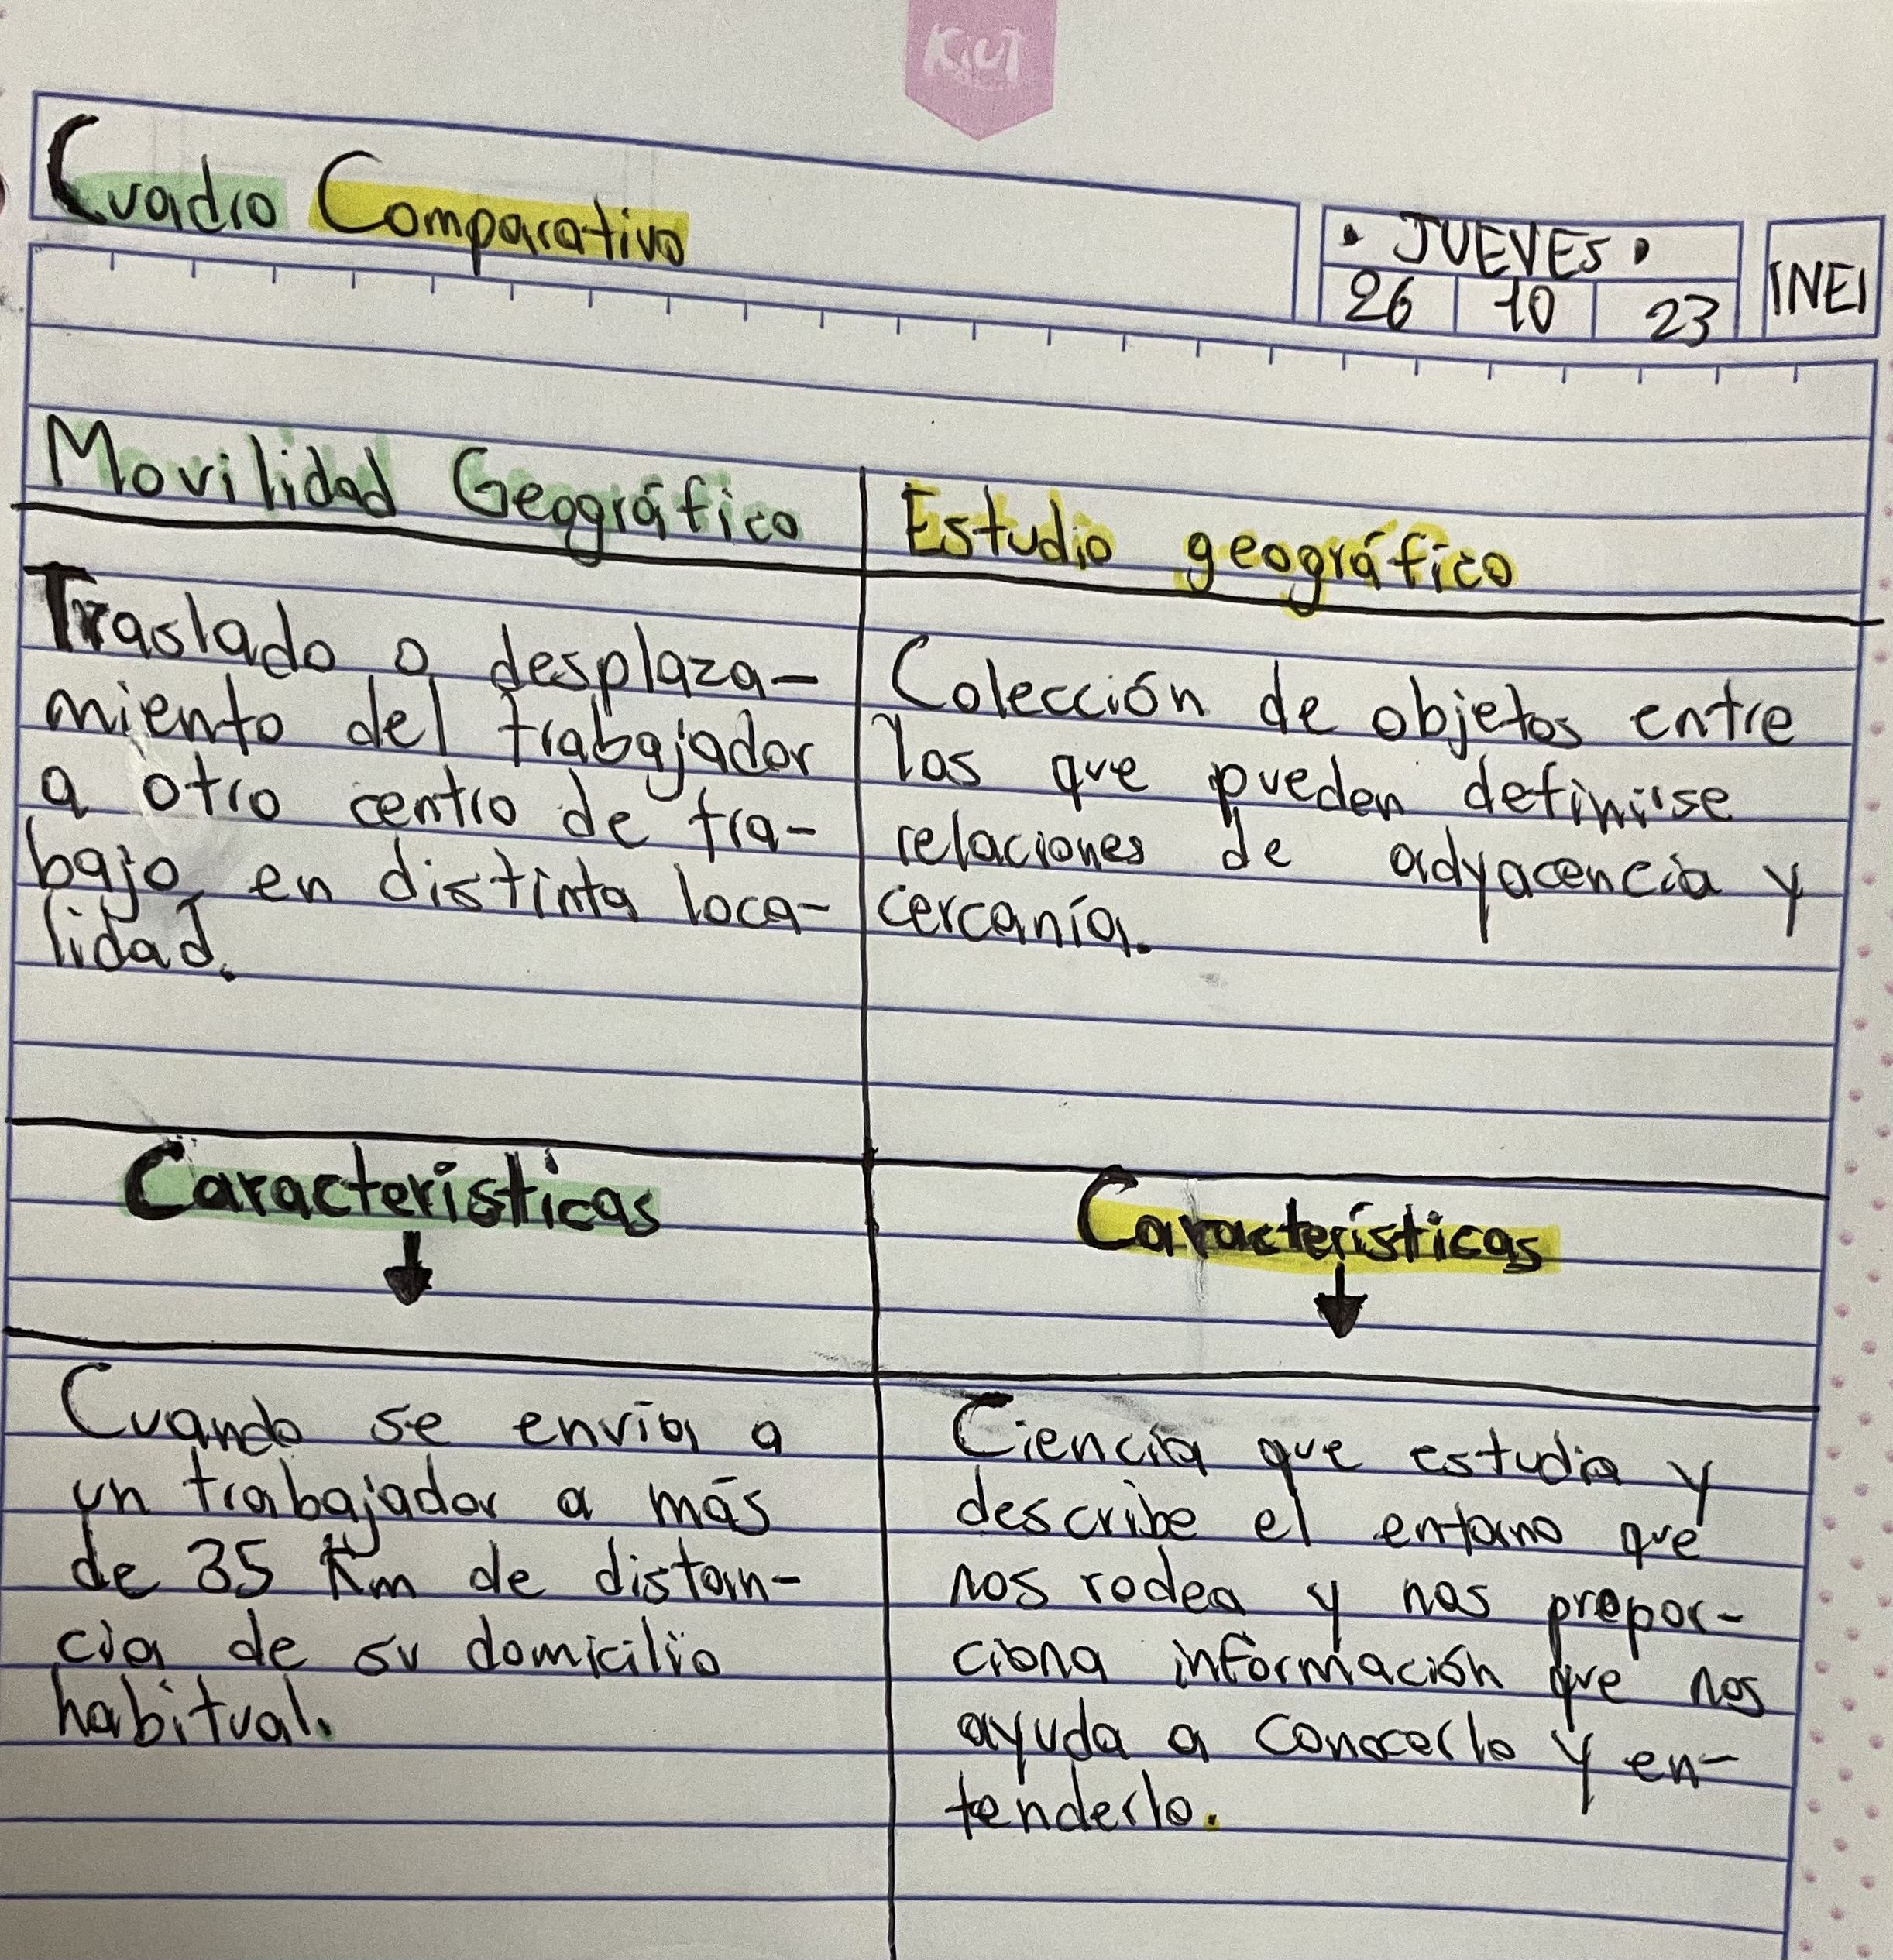 Kiut
Cuadro Comparativo
• JUEVES •
26 10 23
INEI
Movilidad Geográfico
Traslado o desplaza-
miento del trabajador
a otro centro de tra-
bajo en distinta loca-
lidad.
Estudio geográfico
Colección de objetos entre
los que pueden definirse
relaciones de adyacencia y
cercanía.
Características
Cuando se envía a
un trabajador a más
de 35 Km de distan-
cia de su domicilio
habitual.
Características
Ciencia que estudia y
describe el entorno que
nos rodea y nos propor-
ciona información que nos
ayuda a conocerlo y en-
tenderlo.